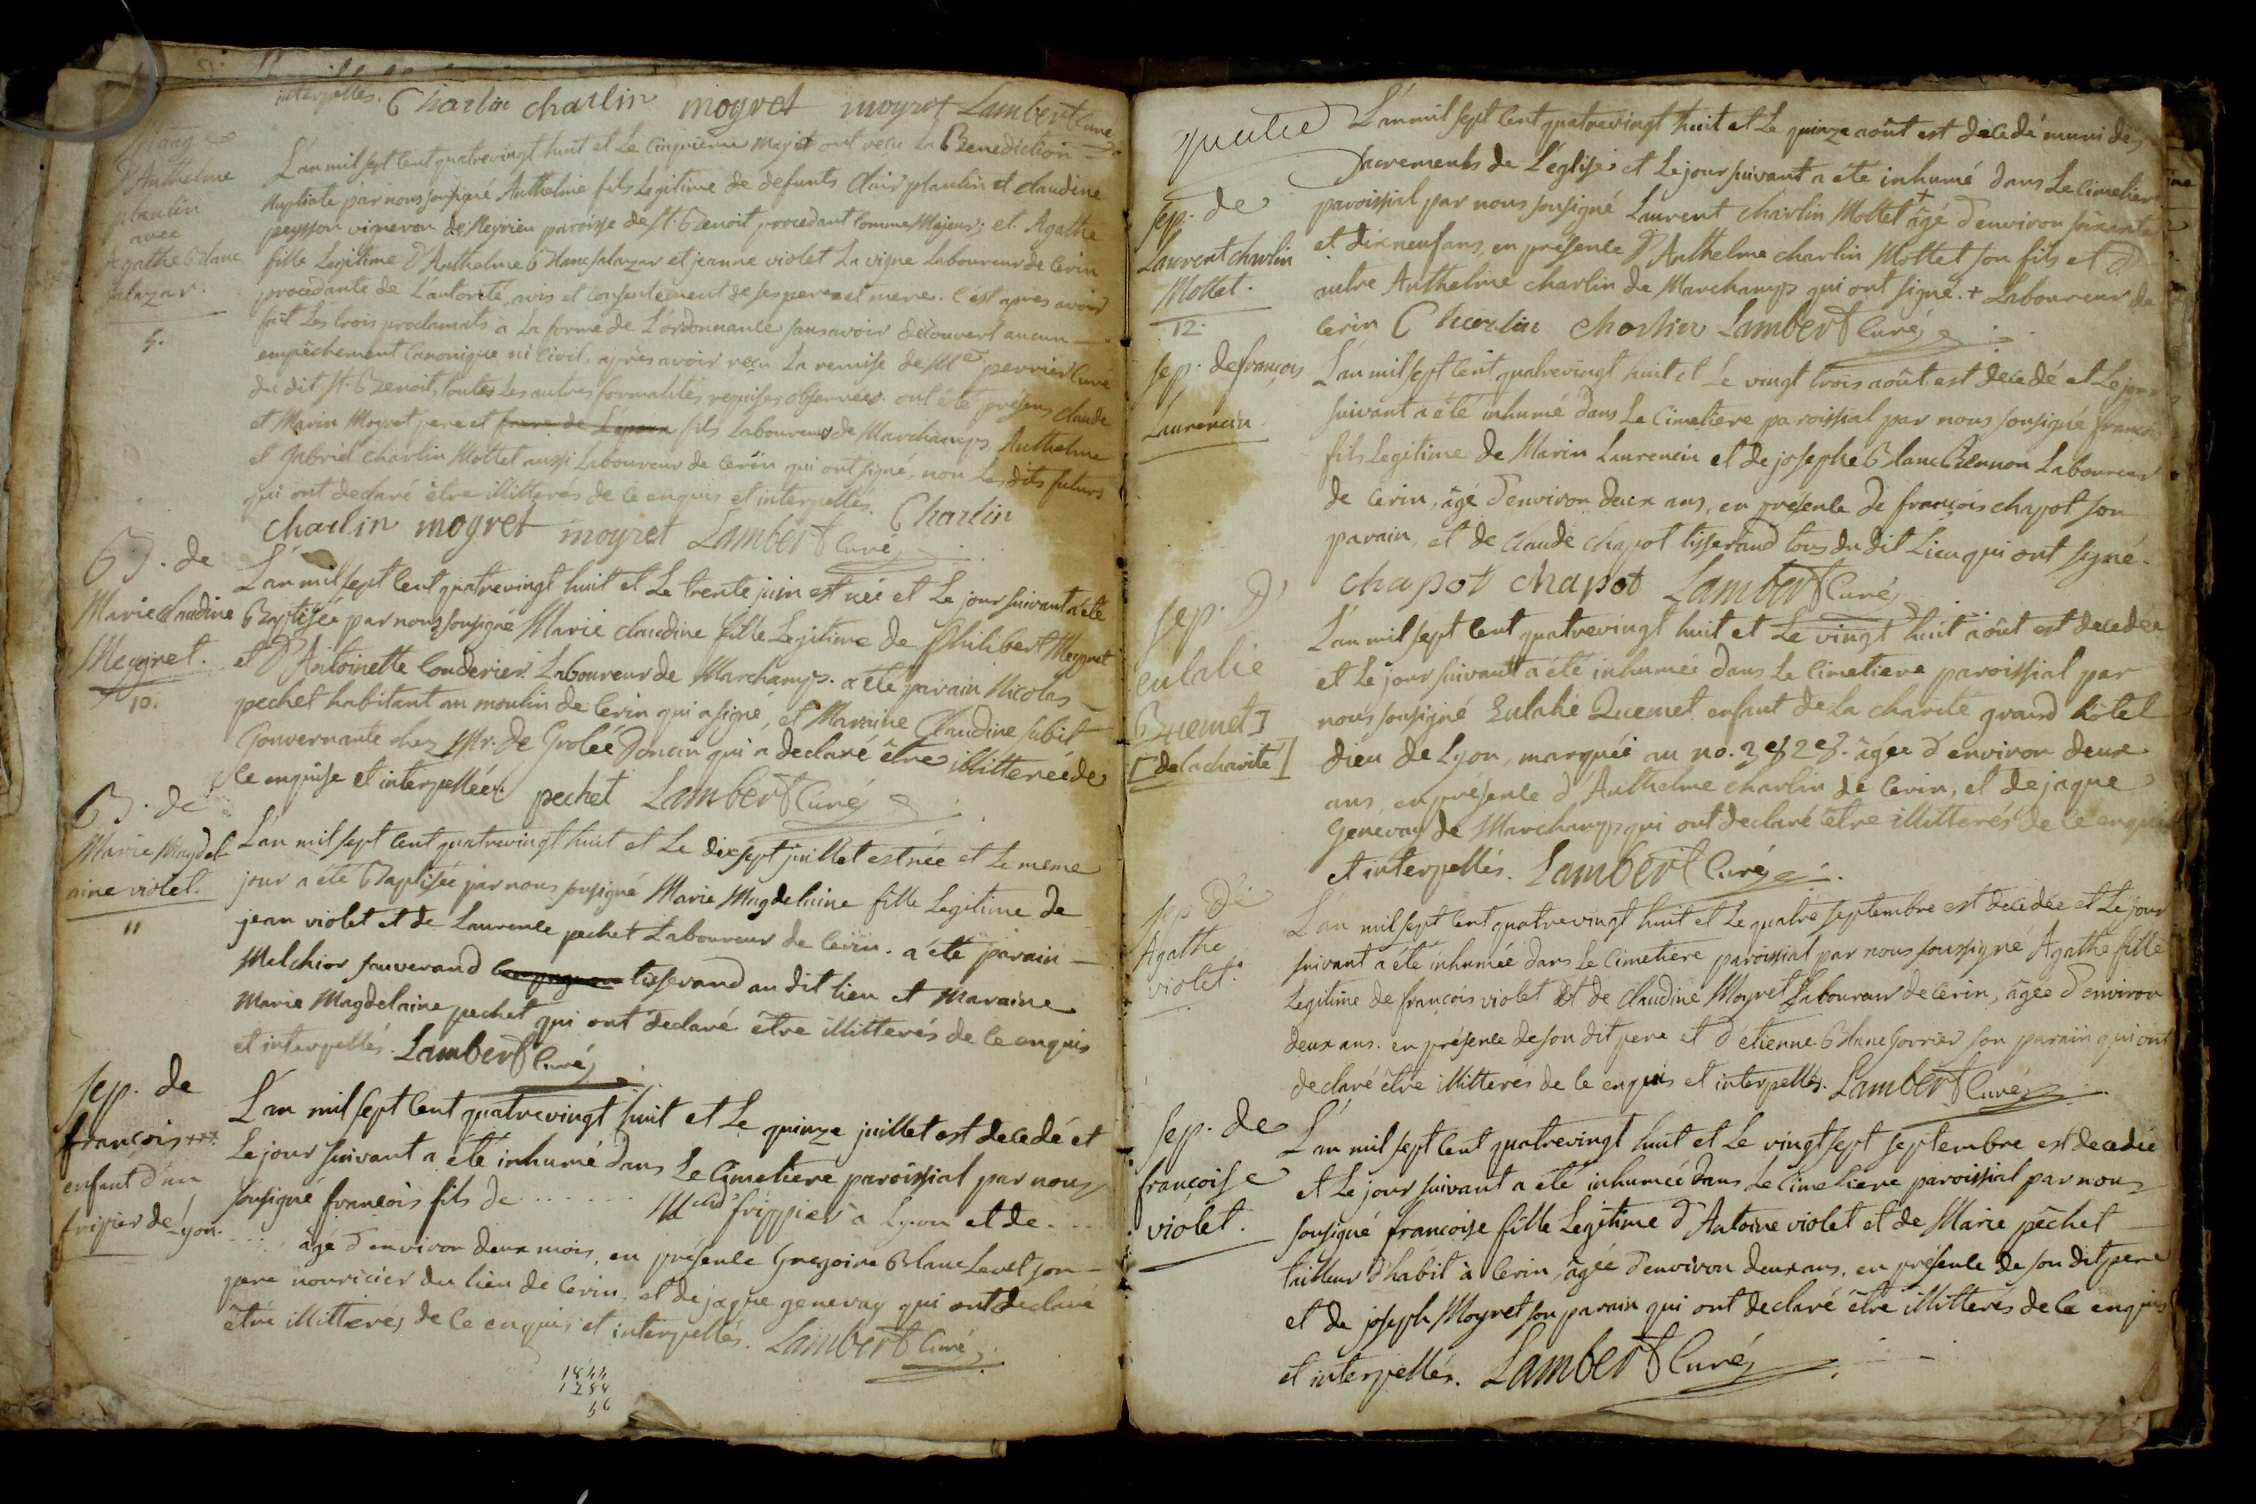 interpellés. Charlin charlin moyret moyret Lambert Curé
Mariage
d'Anthelme
plantin
avec
Agathe Blanc
salazar.
5.
L'an mil sept cent quatrevingt huit et Le cinquieme may et ont reçu La Benediction
nuptiale par nous soussigné Anthelme fils Legitime de defunts Clair plantin et claudine
peysson vigneron de Meyrieu paroisse de St. Benoit procedant comme Majeur; et Agathe
fille Legitime d'Anthelme Blanc salazar et jeanne violet La vigne Laboureur de Cerin
procedante de L'autorité, avis et consentement de ses pere et mere. C'est apres avoir
fait Les trois proclamats à La forme de L'ordonnance sans avoir decouvert aucun
empêchement Canonique ni Civil, après avoir reçu La remise de Mre perrier Curé
du dit St. Benoit, toutes Les autres formalités requises observées. ont été présens claude
et Marin Moyret pere et frere de L'epoux fils Laboureurs de Marchamps, Anthelme
et Gabriel charlin Mottet aussi Laboureur de Cerin qui ont signé, non Les dits futurs
qui ont declaré être illitterés de ce enquis et interpellés. Charlin
charlin moyret moyret Lambert Curé
B. de
Marie claudine
Meygnet.
10.
L'an mil sept cent quatrevingt huit et Le trente juin est née et Le jour suivant a été
Baptisée par nous sousigné Marie claudine fille Legitime de Philibert Meygnet
et d'Antoinette Couderier Laboureur de Marchamps. a été parain Nicolas
pechet habitant au moulin de Cerin qui a signé, et Maraine Claudine subit
Gouvernante chez Mr. de Grolée Doncin qui a declaré être illitterée de
ce enquise et interpellée. pechet Lambert Curé
B. de
Marie Magdel-
aine violet.
11
L'an mil sept cent quatrevingt huit et Le dixsept juillet est née et Le meme
jour a été Baptisée par nous sousigné Marie Magdelaine fille Legitime de
jean violet et de Laurence pechet Laboureur de Cerin. a été parain
Melchior sauverand tisserand au dit lieu et Maraine
Marie Magdelaine pechet qui ont declaré être illitterés de ce enquis
et interpellés. Lambert Curé
sep. de
françois +++
enfant d'un
fripier de Lyon.
L'an mil sept cent quatrevingt huit et Le quinze juillet est decedé et
Le jour suivant a été inhumé dans Le Cimetiere paroissial par nous
sousigné françois fils de ........ Mchd frippier à Lyon et de ...
..... âgé d'environ deux mois, en présence Gregoire Blanc Levet son
pere nouricier du lieu de Cerin, et de jaque genevay qui ont declaré
être illitterés de ce enquis et interpellés. Lambert Curé
1844
1788
56
quatre
sep. de
Laurent charlin
Mottet.
12.
L'an mil sept cent quatrevingt huit et Le quinze août est decedé muni des
sacrements de L'eglise et Le jour suivant a été inhumé dans Le Cimetiere
paroissial par nous sousigné Laurent charlin Mottet + âgé d'environ soixante
et dixneuf ans, en présence d'Anthelme charlin Mottet son fils et d'
autre Anthelme charlin de Marchamps qui ont signé. + Laboureur de
Cerin Charlin charlin Lambert Curé
sep. de françois
Laurencin
L'an mil sept cent quatrevingt huit et Le vingt trois août est decedé et Le jour
suivant a été inhumé dans Le Cimetiere paroissial par nous sousigné françois
fils Legitime de Marin Laurencin et de josephe Blanc Brennon Laboureur
de Cerin, âgé d'environ deux ans, en présence de françois chapot son
parain, et de claude chapot tisserand tous du dit Lieu qui ont signé.
chapot chapot Lambert Curé
sep. d'
eulalie
Quemet]
[de la charité]
L'an mil sept cent quatrevingt huit et Le vingt huit août est decedée
et Le jour suivant a été inhumée dans Le Cimetiere paroissial par
nous sousigné Eulalie Quemet enfant de La charité grand hôtel
dieu de Lyon, marquée au no. 3828. âgée d'environ deux
ans, en présence d'Anthelme charlin de Cerin, et de jaque
Genevay de Marchamps qui ont declaré être illitterés de ce enquis
et interpellés. Lambert Curé
sep. de
Agathe
violet.
L'an mil sept cent quatrevingt huit et Le quatre septembre est decedée et Le jour
suivant a été inhumée dans Le Cimetiere paroissial par nous soussigné Agathe fille
Legitime de françois violet et de claudine Moyret Laboureur de Cerin, âgée d'environ
deux ans. en présence de son dit pere et d'etienne Blanc sorrier son parain qui ont
declaré être illitterés de ce enquis et interpellés. Lambert Curé
sep. de
françoise
violet.
L'an mil sept cent quatrevingt huit et Le vingt sept septembre est decedée
et Le jour suivant a été inhumée dans Le Cimetiere paroissial par nous
sousigné françoise fille Legitime d'Antoine violet et de Marie pêchet
tailleur d'habit à Cerin, âgée d'environ deux ans, en présence de son dit pere
et de joseph Moyret son parain qui ont declaré être illitterés de ce enquis
et interpellés. Lambert Curé